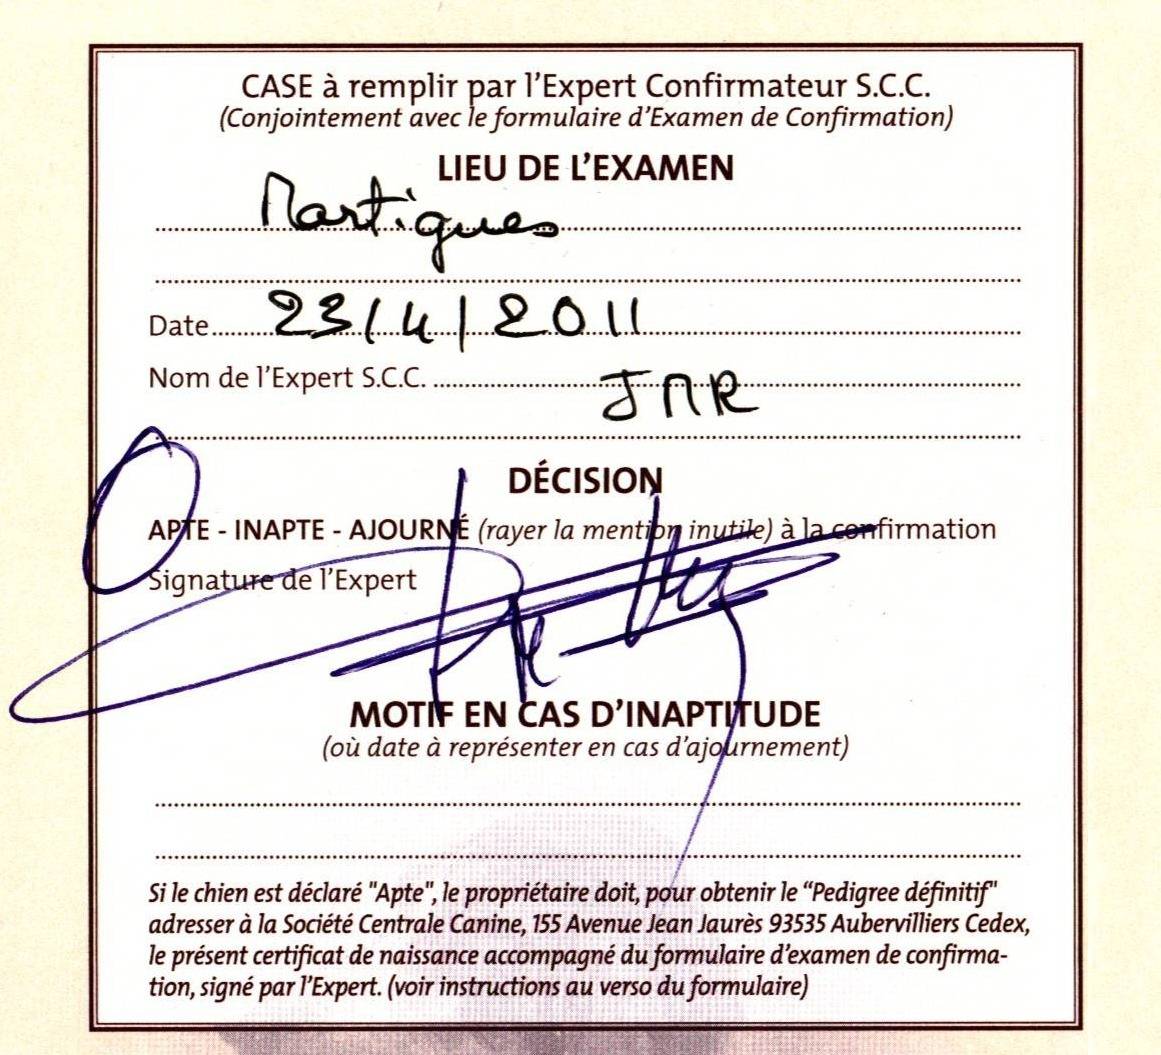 CASE à remplir par l'Expert Confirmateur S.C.C.
(Conjointement avec le formulaire d'Examen de Confirmation)
LIEU DE L'EXAMEN
Martigues
Date 23/4/2011
Nom de l'Expert S.C.C. JMR
DÉCISION
APTE - INAPTE - AJOURNÉ (rayer la mention inutile) à la confirmation
Signature de l'Expert
MOTIF EN CAS D'INAPTITUDE
(où date à représenter en cas d'ajournement)
Si le chien est déclaré "Apte", le propriétaire doit, pour obtenir le “Pedigree définitif"
adresser à la Société Centrale Canine, 155 Avenue Jean Jaurès 93535 Aubervilliers Cedex,
le présent certificat de naissance accompagné du formulaire d'examen de confirma-
tion, signé par l'Expert. (voir instructions au verso du formulaire)